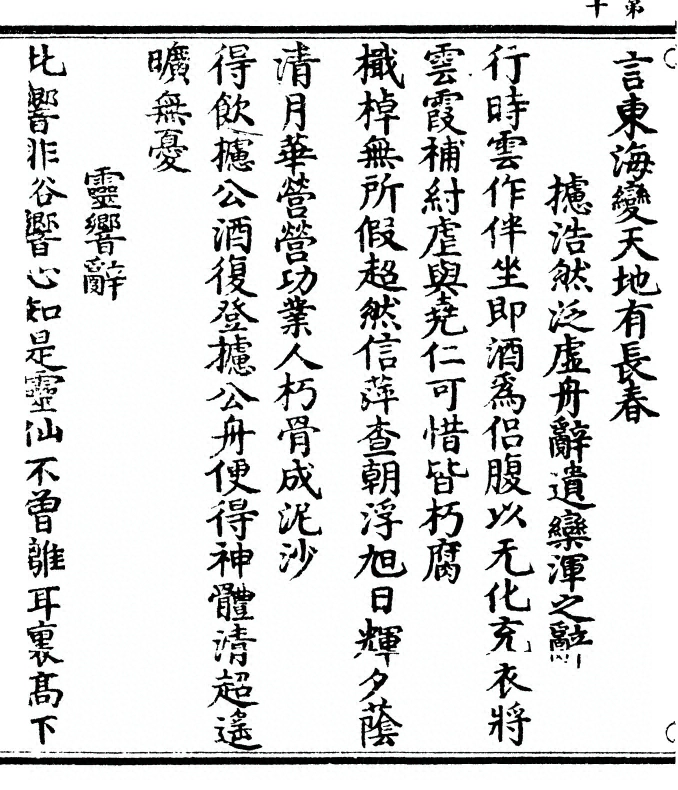 第十
言東海變天地有長春
攄浩然泛虛舟辭遺欒渾之辭
行時雲作伴坐即酒爲侶腹以无化充衣將
雲霞補紂虐與堯仁可惜皆朽腐
檝棹無所假超然信萍查朝浮旭日輝夕蔭
清月華營營功業人朽骨成泥沙
得飲攄公酒復登攄公舟便得神體清超遙
曠無憂
靈響辭
此響非谷響心知是靈仙不曾離耳裏高下